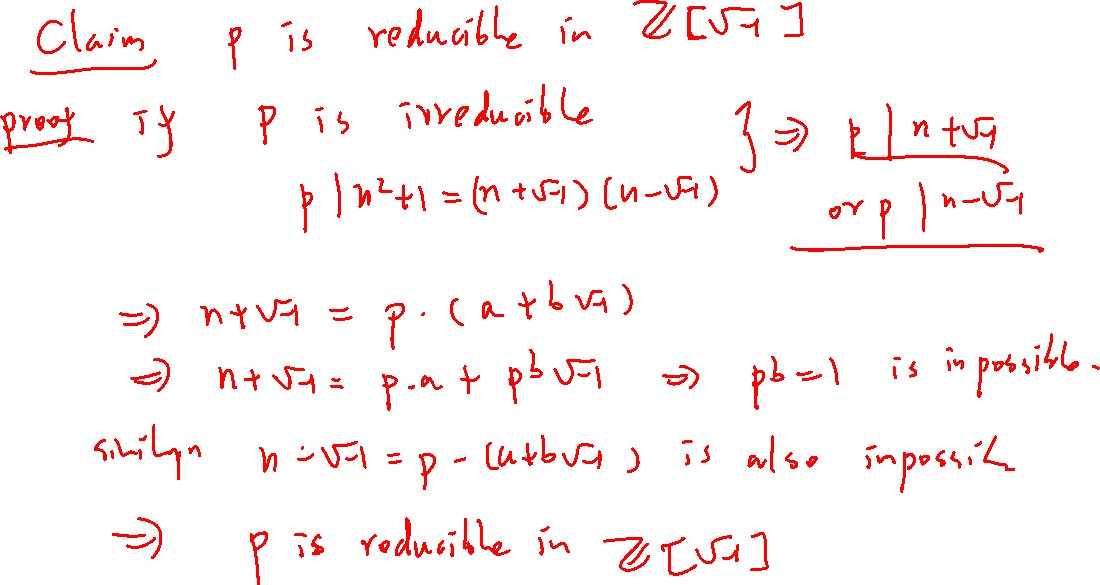 Claim p is reducible in ℤ[√-1]
proof if p is irreducible
p | n²+1 = (n+√-1)(n-√-1) } ⇒ p | n+√-1
or p | n-√-1
⇒ n+√-1 = p·(a+b√-1)
⇒ n+√-1 = p·a + pb√-1 ⇒ pb=1 is inpossible.
n-√-1 = p-(a+b√-1) is also
⇒ p is reducible in ℤ[√-1]